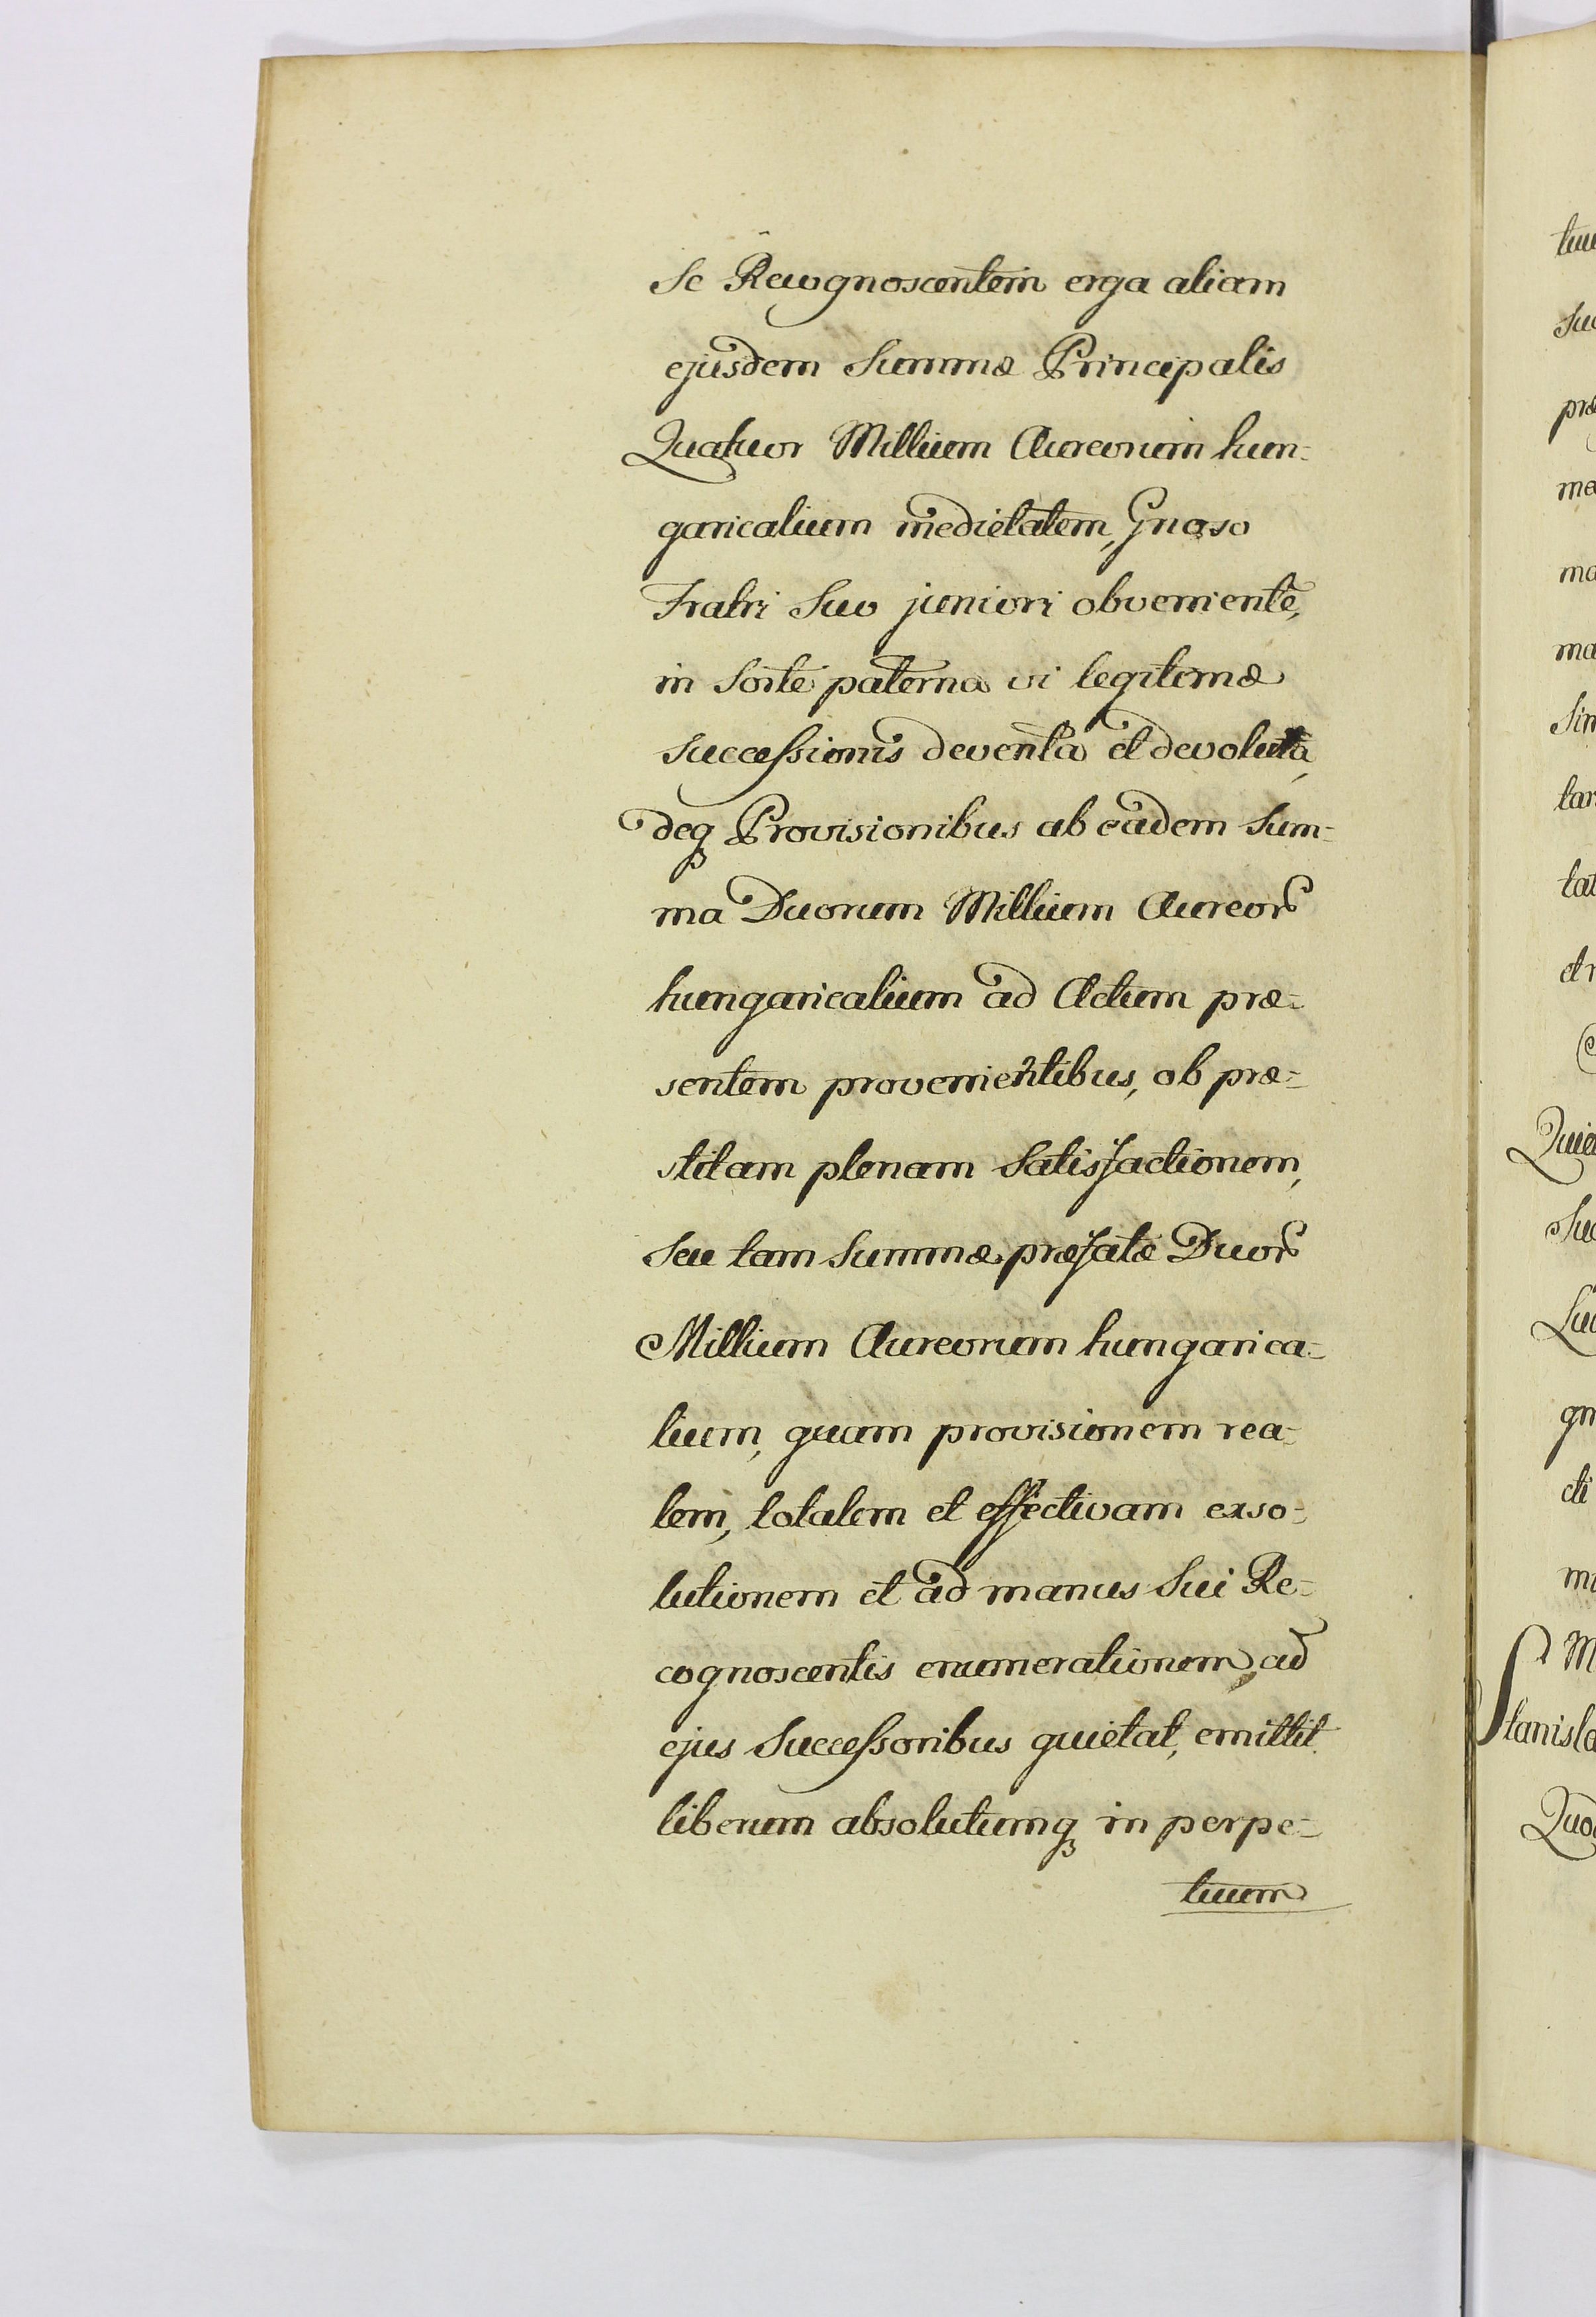 se Recognoscentem erga aliam
ejusdem Summæ Principalis
Quatuor Millium Aureorum hun=
garicalium medietatem, Gnoso
Fratri Suo juniori obvenientē,
in Sorte paterna vi legitimæ
Successionis deventā et devolutā,
deq Provisionibus ab eadem Sum=
ma Duorum Millium Aureor
hungaricalium ad Actum præ=
sentem provenientibus, ob præ=
stitam plenam Satisfactionem,
Seu tam Summæ præfatæ Duor
Millium Aureorum hungarica=
lium, quam provisionem rea=
lem, totalem et effectivam exso=
lutionem et ad manus Sui Re=
cognoscentis enumerationem, cū
ejus Successoribus quietat, emittit
liberum absolutumq in perpe=
tuum
tuu
Suc
præ
me
ma
ma
Sim
tan
tat
et
Quie
Suc
Suc
gn
cti
M
Stanisla
Quo